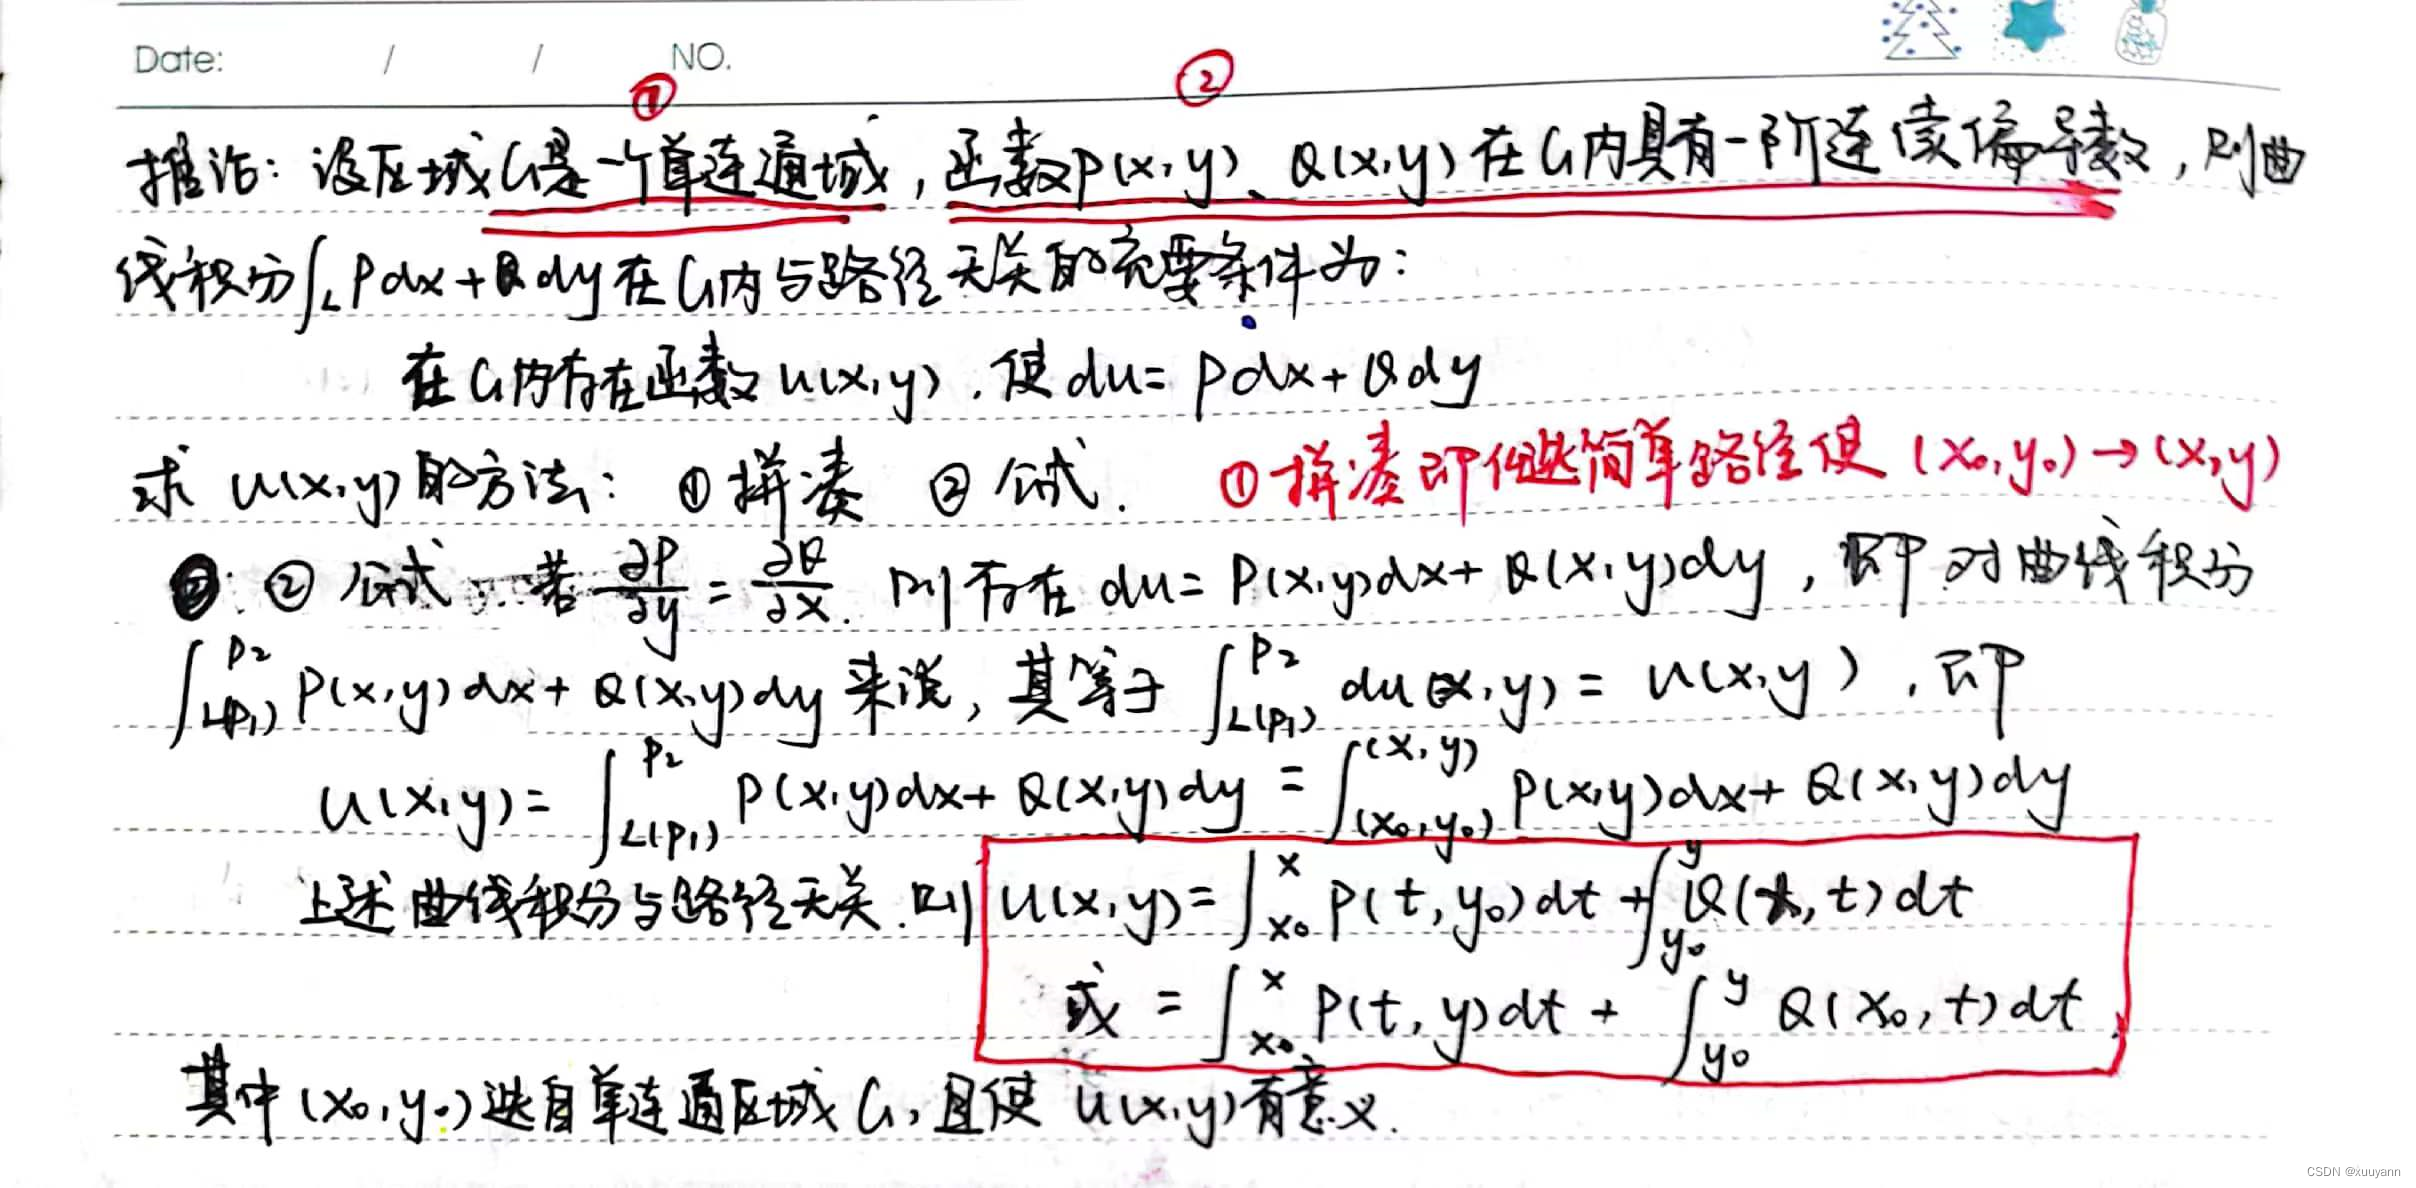 Date: / / NO.
① ②
推论：设区域G是一个单连通域，函数P(x,y)、Q(x,y)在G内具有一阶连续偏导数，则曲
线积分∫_L Pdx+Qdy在G内与路径无关的充要条件为：
在G内存在函数u(x,y)，使du=Pdx+Qdy
求u(x,y)的方法：①拼凑 ②公式. ①拼凑即任选简单路径使(x₀,y₀)→(x,y)
②公式 若∂P/∂y=∂Q/∂x. 则存在du=P(x,y)dx+Q(x,y)dy，即对曲线积分
∫_{L(P₁)}^{P₂} P(x,y)dx+Q(x,y)dy来说，其等于∫_{L(P₁)}^{P₂} du(x,y)=u(x,y)，即
u(x,y)=∫_{L(P₁)}^{P₂} P(x,y)dx+Q(x,y)dy=∫_{(x₀,y₀)}^{(x,y)} P(x,y)dx+Q(x,y)dy
上述曲线积分与路径无关.则 u(x,y)=∫_{x₀}^{x} P(t,y₀)dt+∫_{y₀}^{y} Q(x,t)dt
或 =∫_{x₀}^{x} P(t,y)dt+∫_{y₀}^{y} Q(x₀,t)dt
其中(x₀,y₀)选自单连通区域G，且使u(x,y)有意义.
CSDN @xuuyann